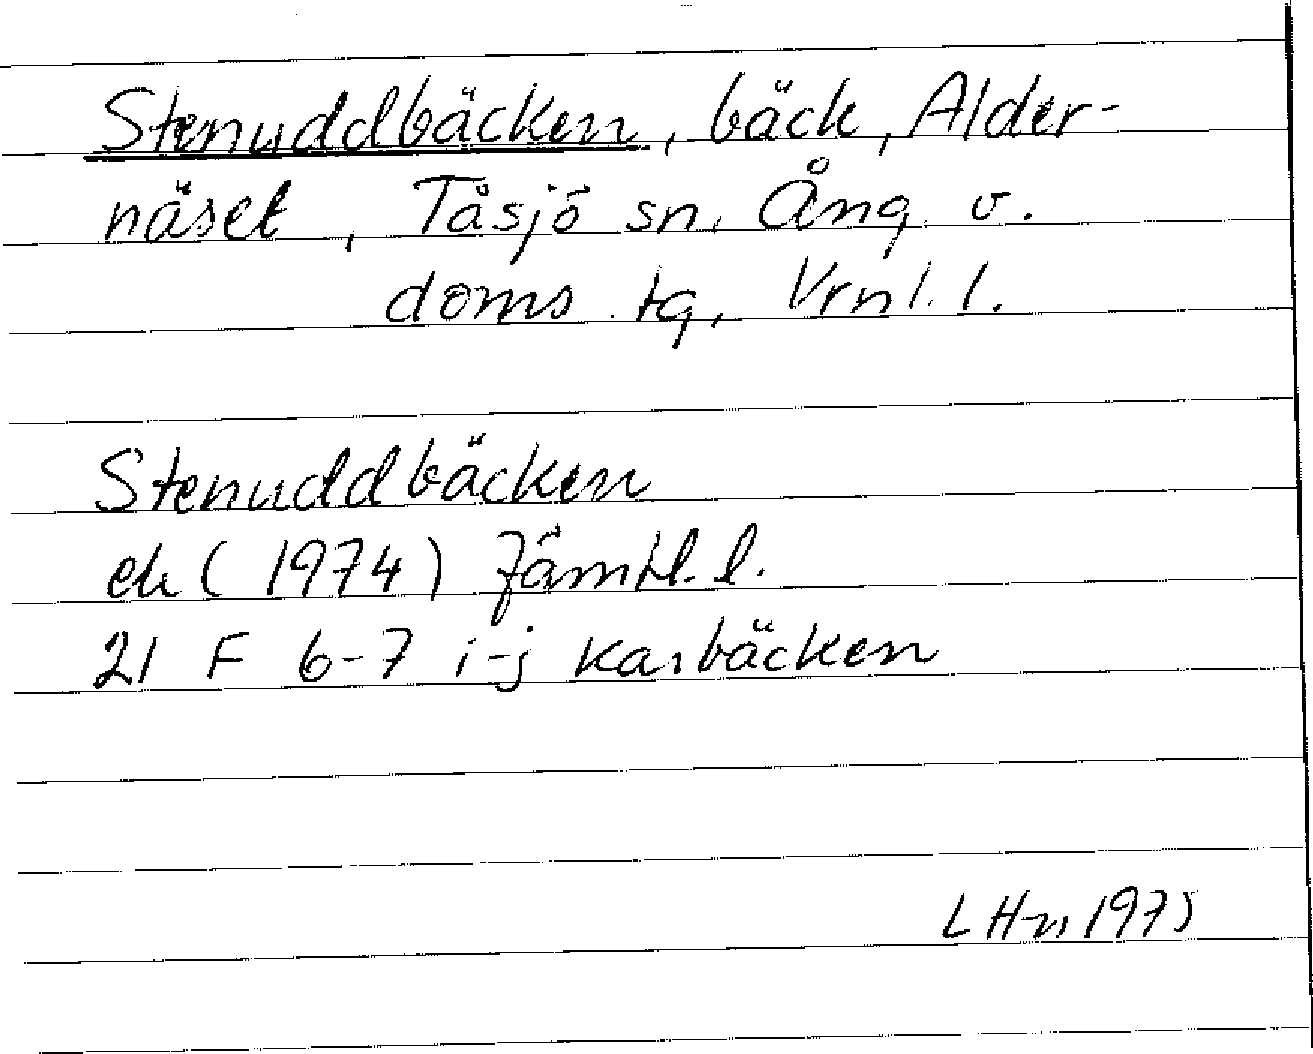 Stenuddbäcken, bäck, Alder-
näset, Tåsjö sn, Ång. v.
doms. tg, Vrnl. l.
Stenuddbäcken
ek (1974) Jämtl. l.
21 F 6-7 i-j Karbäcken
L Hn 1975